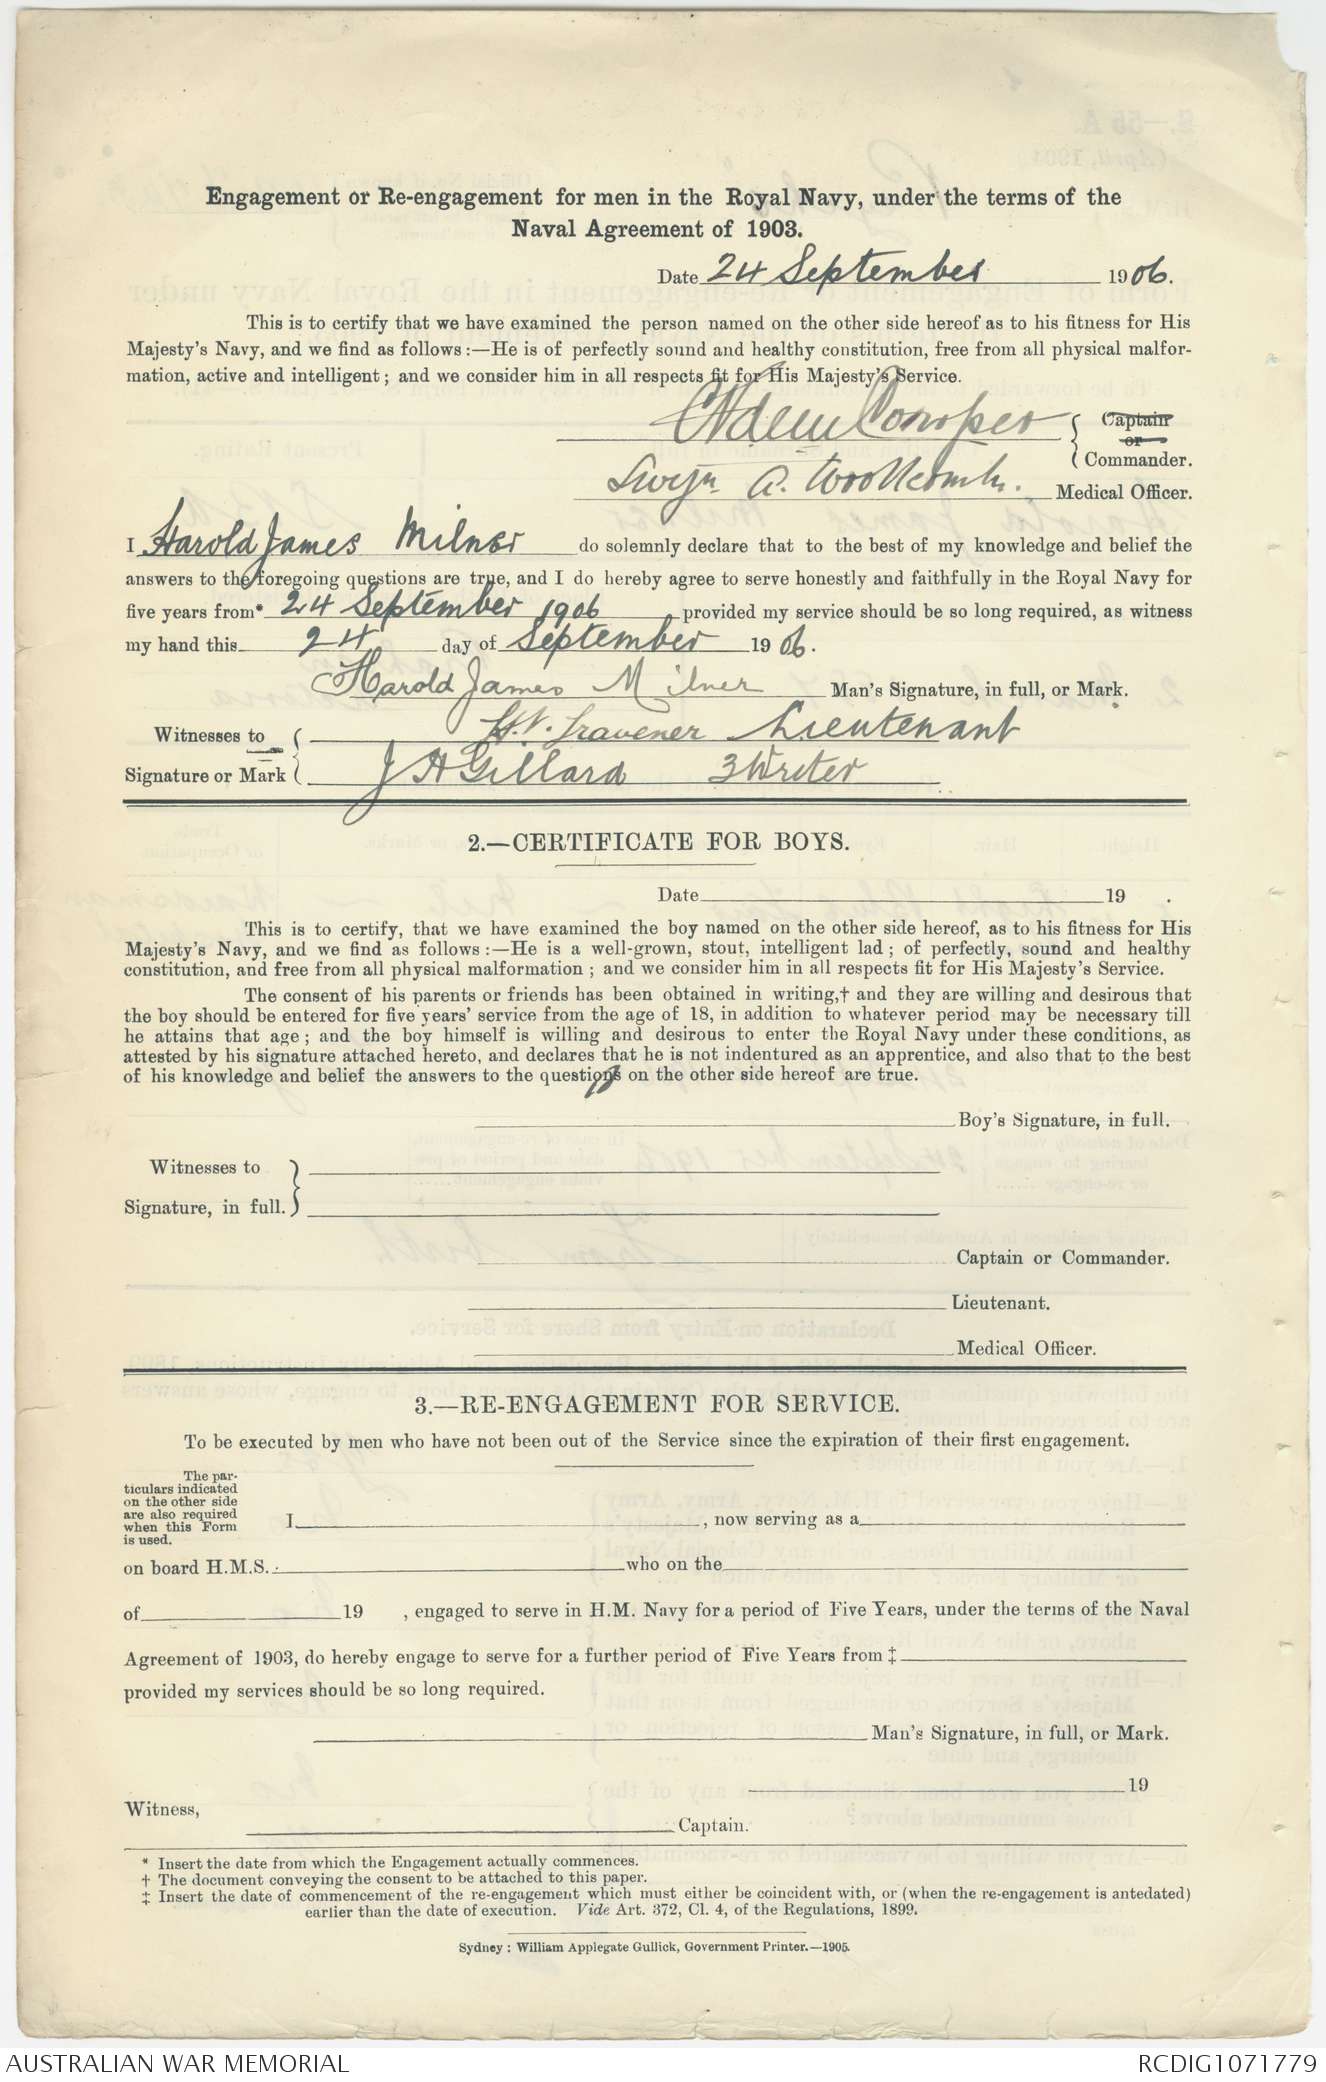 Engagement or Re-engagement for men in the Royal Navy, under the terms of the
Naval Agreement of 1903.
Date 24 September 1906.
This is to certify that we have examined the person named on the other side hereof as to his fitness for His
Majesty's Navy, and we find as follows :—He is of perfectly sound and healthy constitution, free from all physical malfor-
mation, active and intelligent ; and we consider him in all respects fit for His Majesty's Service.
Cowper
Captain
or
Commander.
A. Woollcombe. Medical Officer.
I Harold James Milner do solemnly declare that to the best of my knowledge and belief the
answers to the foregoing questions are true, and I do hereby agree to serve honestly and faithfully in the Royal Navy for
five years from* 24 September 1906 provided my service should be so long required, as witness
my hand this 24 day of September 1906.
Harold James Milner Man's Signature, in full, or Mark.
Witnesses to
Signature or Mark
Travener Lieutenant
J H Gillard 3 Writer
2.—CERTIFICATE FOR BOYS.
Date 19 .
This is to certify, that we have examined the boy named on the other side hereof, as to his fitness for His
Majesty's Navy, and we find as follows :—He is a well-grown, stout, intelligent lad ; of perfectly, sound and healthy
constitution, and free from all physical malformation ; and we consider him in all respects fit for His Majesty's Service.
The consent of his parents or friends has been obtained in writing,† and they are willing and desirous that
the boy should be entered for five years' service from the age of 18, in addition to whatever period may be necessary till
he attains that age ; and the boy himself is willing and desirous to enter the Royal Navy under these conditions, as
attested by his signature attached hereto, and declares that he is not indentured as an apprentice, and also that to the best
of his knowledge and belief the answers to the questions on the other side hereof are true.
Boy's Signature, in full.
Witnesses to
Signature, in full.
Captain or Commander.
Lieutenant.
Medical Officer.
3.—RE-ENGAGEMENT FOR SERVICE.
To be executed by men who have not been out of the Service since the expiration of their first engagement.
The par-
ticulars indicated
on the other side
are also required
when this Form
is used.
I , now serving as a
on board H.M.S. who on the
of 19 , engaged to serve in H.M. Navy for a period of Five Years, under the terms of the Naval
Agreement of 1903, do hereby engage to serve for a further period of Five Years from ‡
provided my services should be so long required.
Man's Signature, in full, or Mark.
19
Witness,
Captain.
* Insert the date from which the Engagement actually commences.
† The document conveying the consent to be attached to this paper.
‡ Insert the date of commencement of the re-engagement which must either be coincident with, or (when the re-engagement is antedated)
earlier than the date of execution. Vide Art. 372, Cl. 4, of the Regulations, 1899.
Sydney : William Applegate Gullick, Government Printer.—1905.
AUSTRALIAN WAR MEMORIAL
RCDIG1071779